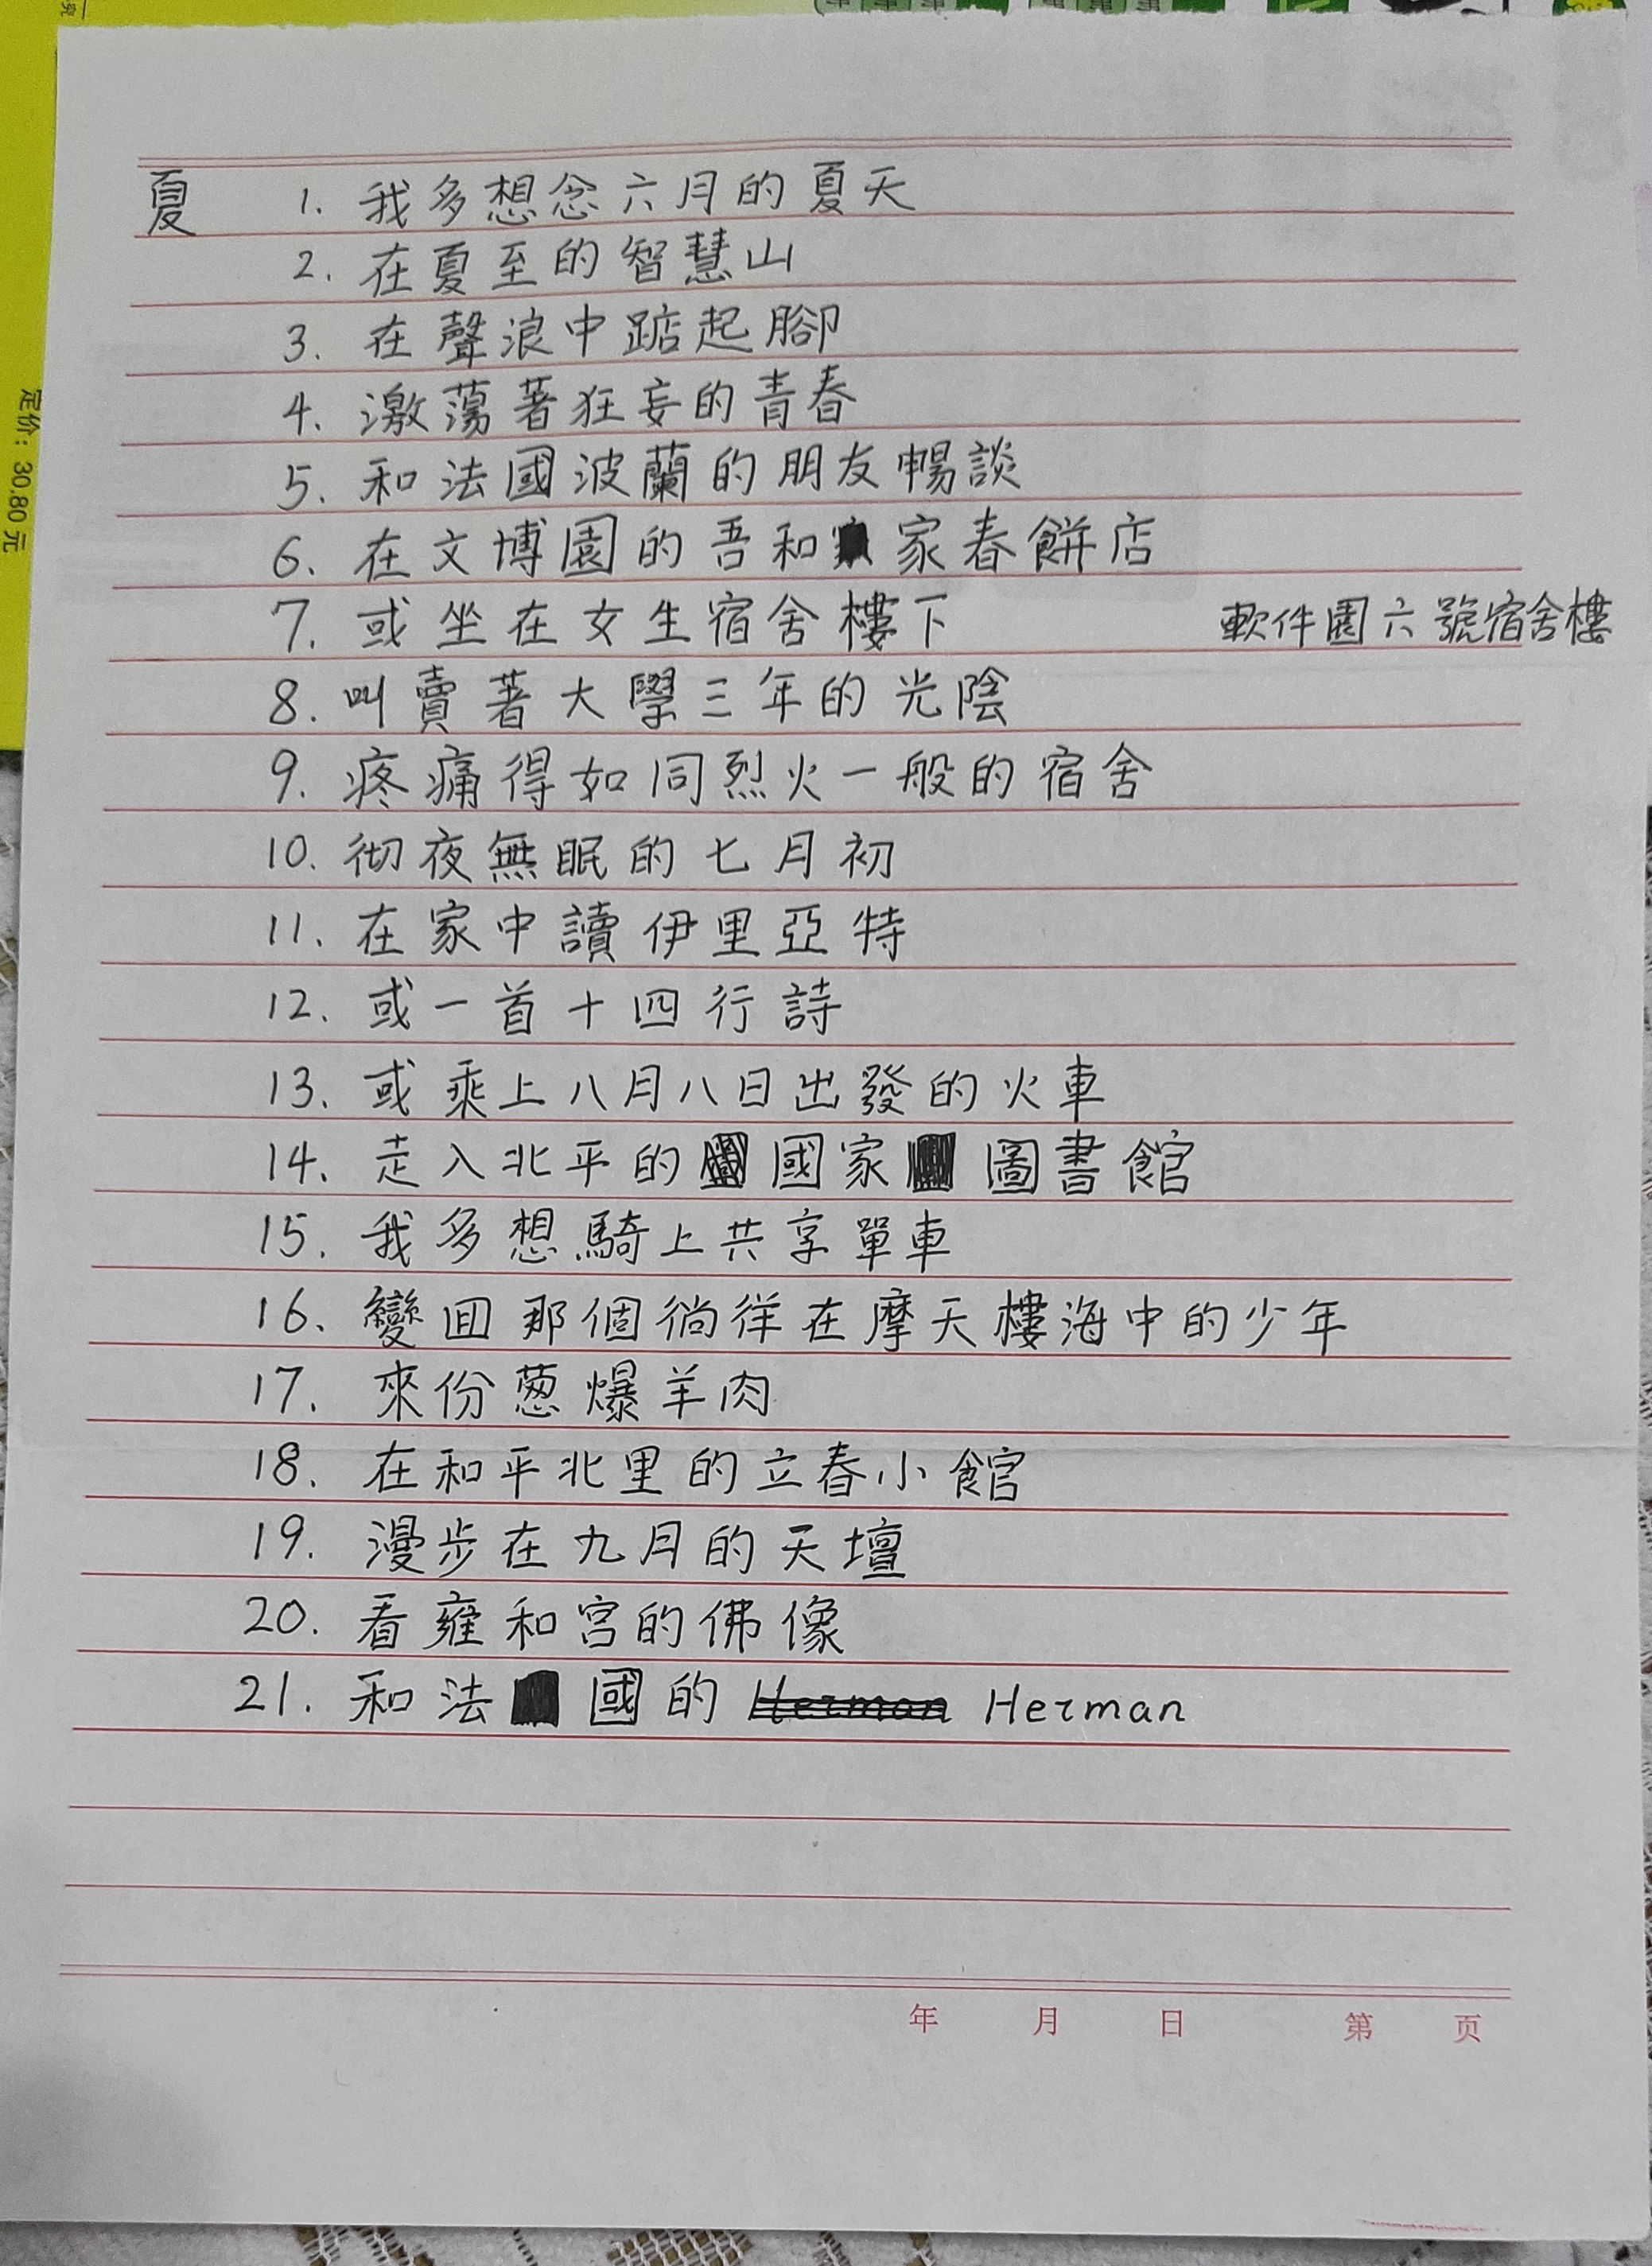 夏 1. 我多想念六月的夏天
2. 在夏至的智慧山
3. 在聲浪中踮起腳
4. 激蕩著狂妄的青春
5. 和法國波蘭的朋友暢談
6. 在文博園的吾和家春餅店
7. 或坐在女生宿舍樓下 軟件園六號宿舍樓
8. 叫賣著大學三年的光陰
9. 疼痛得如同烈火一般的宿舍
10. 彻夜無眠的七月初
11. 在家中讀伊里亞特
12. 或一首十四行詩
13. 或乘上八月八日出發的火車
14. 走入北平的國家圖書館
15. 我多想騎上共享單車
16. 變回那個徜徉在摩天樓海中的少年
17. 來份葱爆羊肉
18. 在和平北里的立春小館
19. 漫步在九月的天壇
20. 看雍和宮的佛像
21. 和法國的 Herman Herman
年 月 日 第 页
定价: 30.80 元